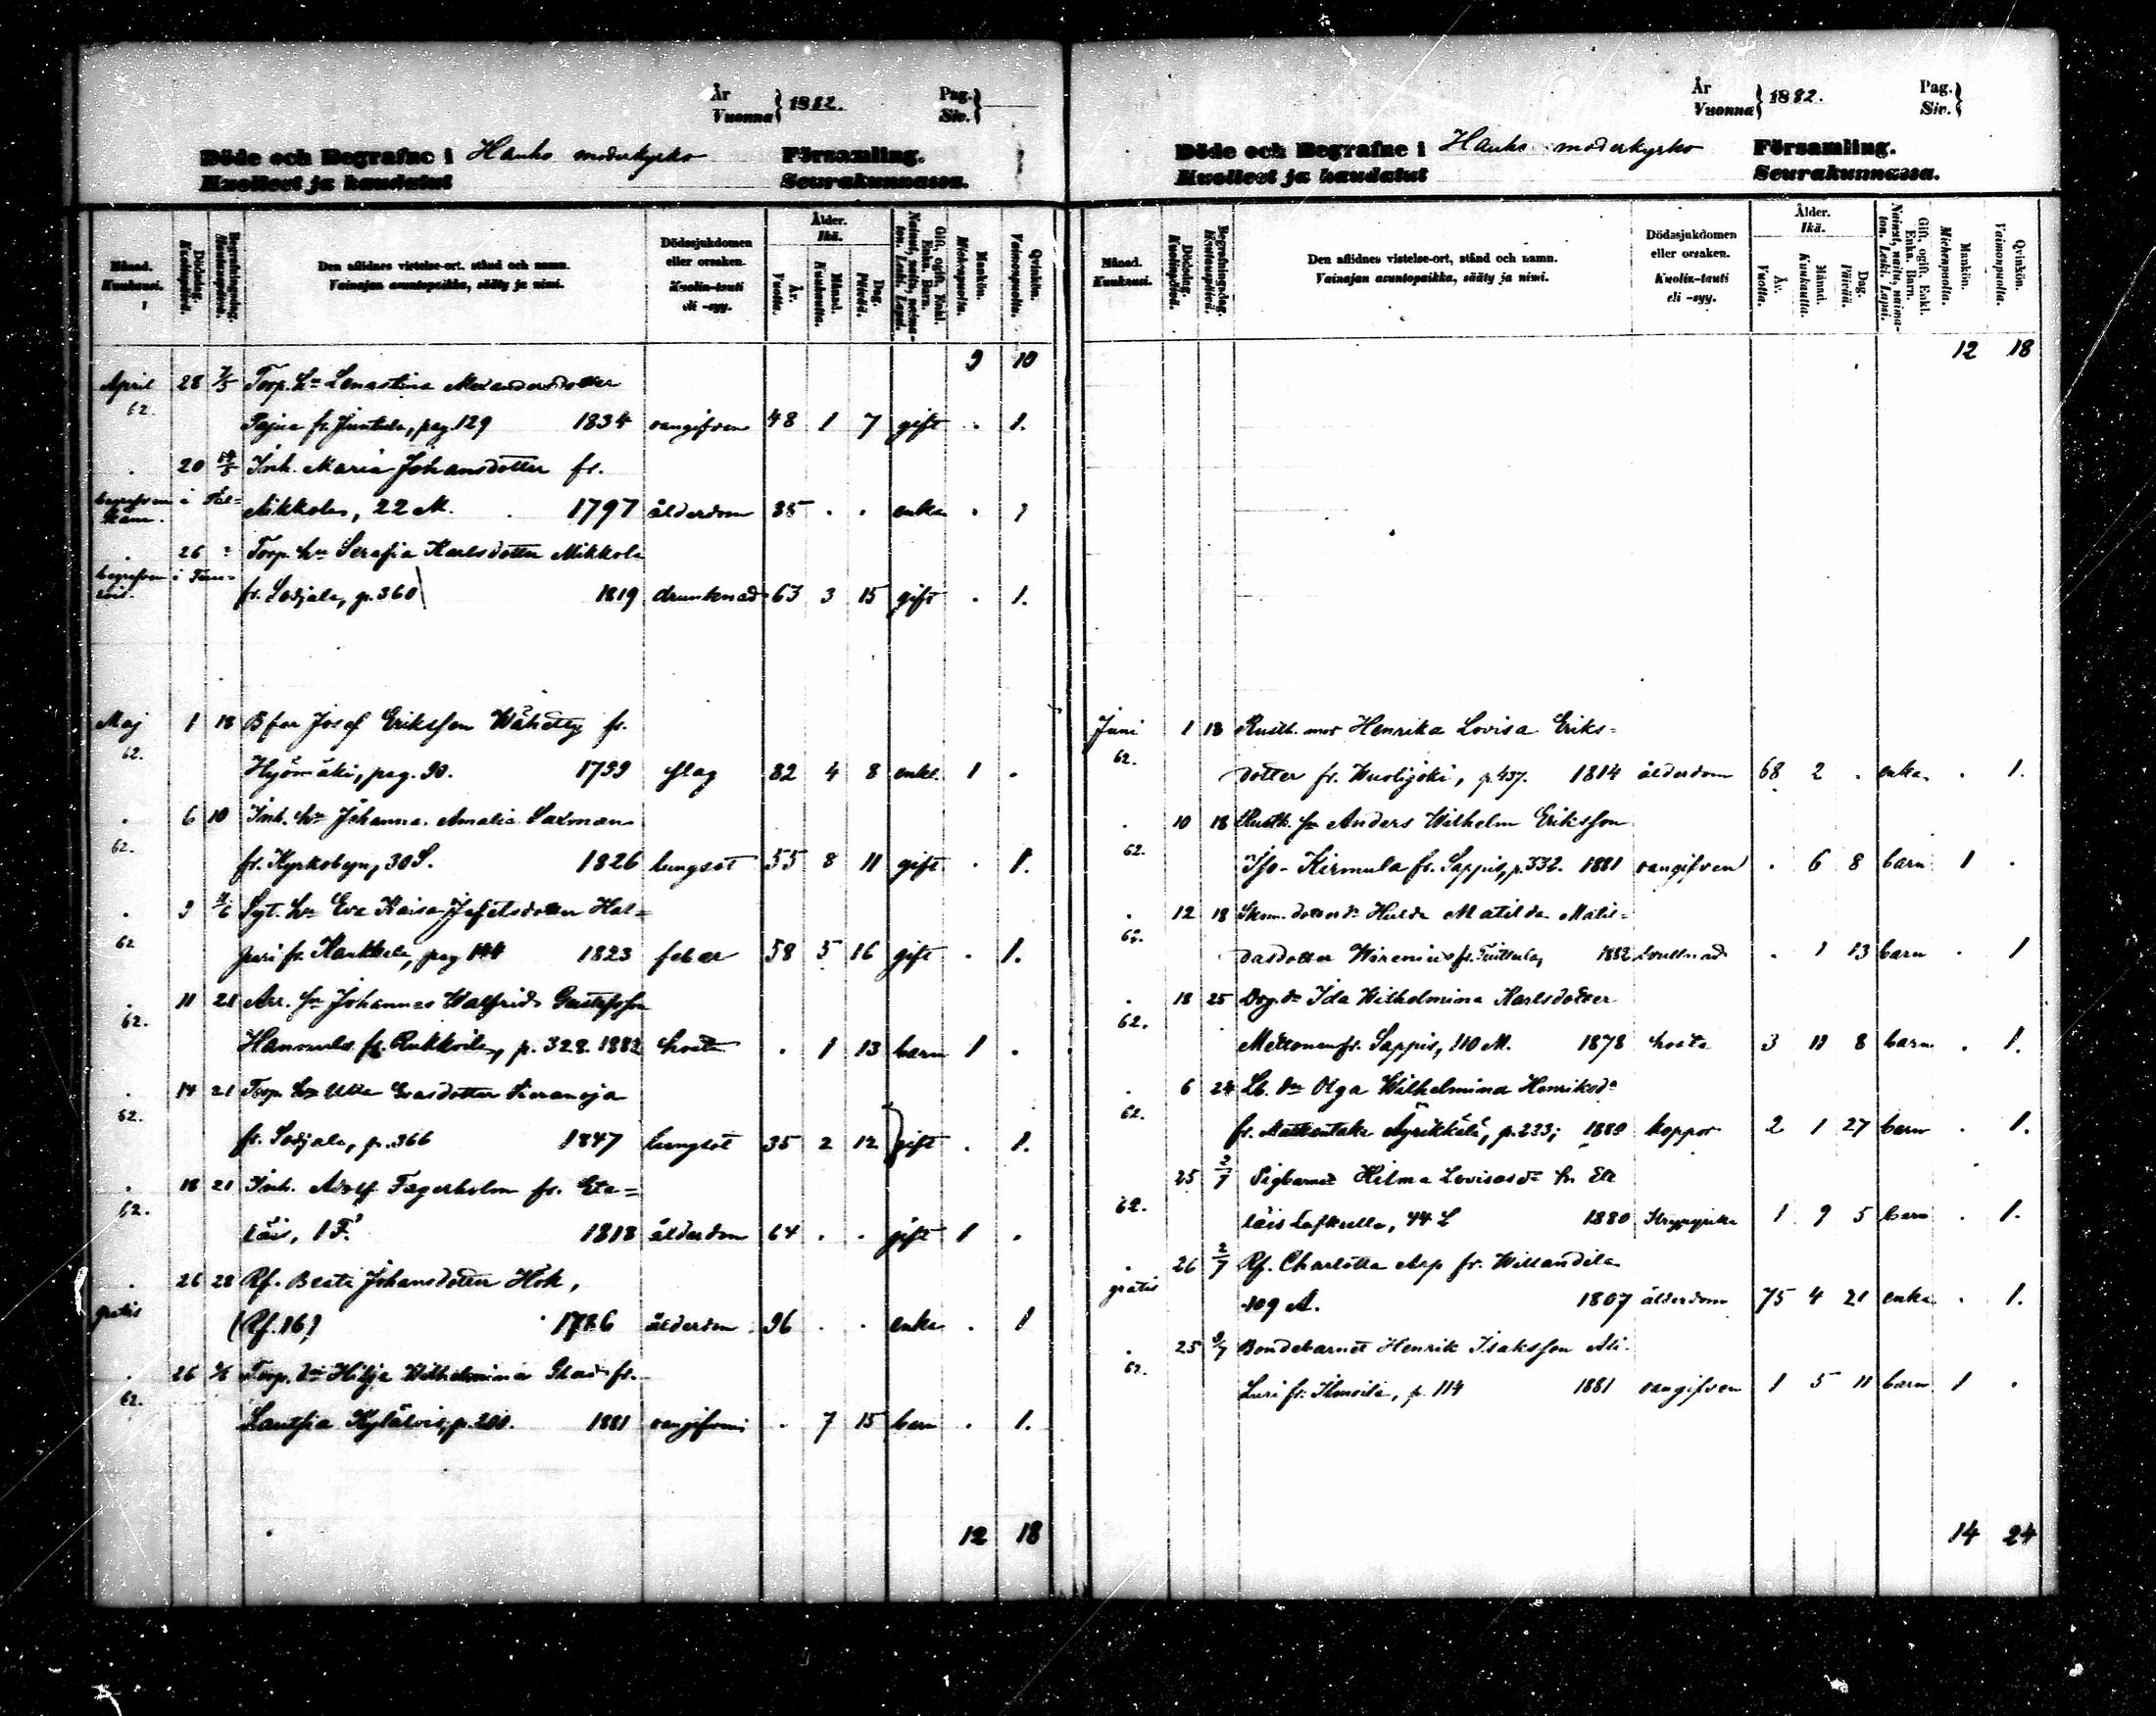 År
Vuonna } 1882.
Pag.
Siv. }
Döde och Begrafne i Hauho moderkyrko Församling.
Kuolleet ja haudatut Seurakunnassa.
Månad. Kuukausi.
Dödsdag. Kuolinpäivä.
Begrafningsdag. Hautauspäivä.
Den aflidnes vistelse-ort, stånd och namn.
Vainajan asuntopaikka, sääty ja nimi.
Dödssjukdomen eller orsaken.
Kuolin-tauti eli -syy.
Ålder. Ikä.
År. Vuotta.
Månad. Kuukautta.
Dag. Päivää.
Gift, ogift, Enkl. Enka. Barn.
Nainut, naitu, naimaton. Leski. Lapsi.
Mankön. Miehenpuolta.
Qvinkön. Vaimonpuolta.
9 10
April 28 7/5 Torp. hu Lenastina Alexandersdotter
62. Pajua fr. Juntula, pag. 129 1834 oangifven 48 1 7 gift . 1.
. 20 Inh. Maria Johansdotter fr.
begrafven i Pälkäne. Mikkola, 22 M. 1797 ålderdom 85 . . enka . 1
. 26 Torp. hu Serafia Karlsdotter Mikkola
begrafven i fr. Sotjala, p. 360 1819 drunknad 63 3 15 gift . 1.
Maj 1 18 Bfar Josef Eriksson Wähetty fr.
62. Hyömäki, pag. 90. 1799 slag 82 4 8 enkl. 1 .
. 6 10 Inh. hu Johanna Amalia Saxman
62. fr. Kyrkobyn, 30 S. 1826 lungsot 55 8 11 gift . 1.
. 9 Syt. hu Eva Kaisa Jafetsdotter Hal=
62 pari fr. Kankkila, pag 144 1823 feber 58 5 16 gift . 1.
. 11 21 Arr. sn Johannes Walfrid Gustafsson
62. Hannula fr. Rukkoila, p. 322. 1882 hosta . 1 13 barn 1 .
. 14 21 Torp. hu Ulla Evasdotter Sieranoja
62. fr. Sotjala, p. 366 1847 lungsot 35 2 12 gift . 1.
. 18 21 Inh. Adolf Fagerholm fr. Ete=
62. läis, 1 F. 1818 ålderdom 64 . . gift 1 .
. 26 28 Rf. Beata Johansdotter Hök,
gratis (Rf. 16) 1786 ålderdom 96 . . enka . 1
. 26 Torp. dr Hilja Wilhelmina Glad fr.
62. Lautsia Kylävis, p. 200. 1881 oangifven . 7 15 barn . 1.
12 18
År
Vuonna } 1882.
Pag.
Siv. }
Döde och Begrafne i Hauho moderkyrko Församling.
Kuolleet ja haudatut Seurakunnassa.
Månad. Kuukausi.
Dödsdag. Kuolinpäivä.
Begrafningsdag. Hautauspäivä.
Den aflidnes vistelse-ort, stånd och namn.
Vainajan asuntopaikka, sääty ja nimi.
Dödssjukdomen eller orsaken.
Kuolin-tauti eli -syy.
Ålder. Ikä.
År. Vuotta.
Månad. Kuukautta.
Dag. Päivää.
Gift, ogift, Enkl. Enka. Barn.
Nainut, naitu, naimaton. Leski. Lapsi.
Mankön. Miehenpuolta.
Qvinkön. Vaimonpuolta.
12 18
Juni 1 18 Rusth. mor Henrika Lovisa Eriks=
62. dotter fr. Kuolijoki, p. 437. 1814 ålderdom 68 2 . enka . 1.
. 10 18 Rusth. sn Anders Wilhelm Eriksson
62. Iso-Kirmula fr. Sappis, p. 332. 1881 oangifven . 6 8 barn 1 .
. 12 18 Hulda Matilda Matil=
62. dasdotter Wirenius fr. Tuittula, 1882 . 1 13 barn . 1
. 18 25 Drg. dr Ida Wilhelmina Karlsdotter
62. fr. Sappis, 110 M. 1878 hosta 3 11 8 barn . 1.
. 6 24 Lb. dr Olga Wilhelmina Henriksdr
62. fr. Äyrikkälä, p. 233; 1880 koppor 2 1 27 barn . 1.
25 2/7 Hilma Lovisasdr fr. Ete
62. läis 44 L 1880 1 9 5 barn . 1.
. 26 2/7 Rf. Charlotta Asp fr. Willandila
gratis 109 A. 1807 ålderdom 75 4 21 enka . 1.
. 25 9/7 Bondebarnet Henrik Isaksson Ali
62. Luri fr. Ilmoila, p. 114 1881 oangifven 1 5 11 barn 1 .
14 24